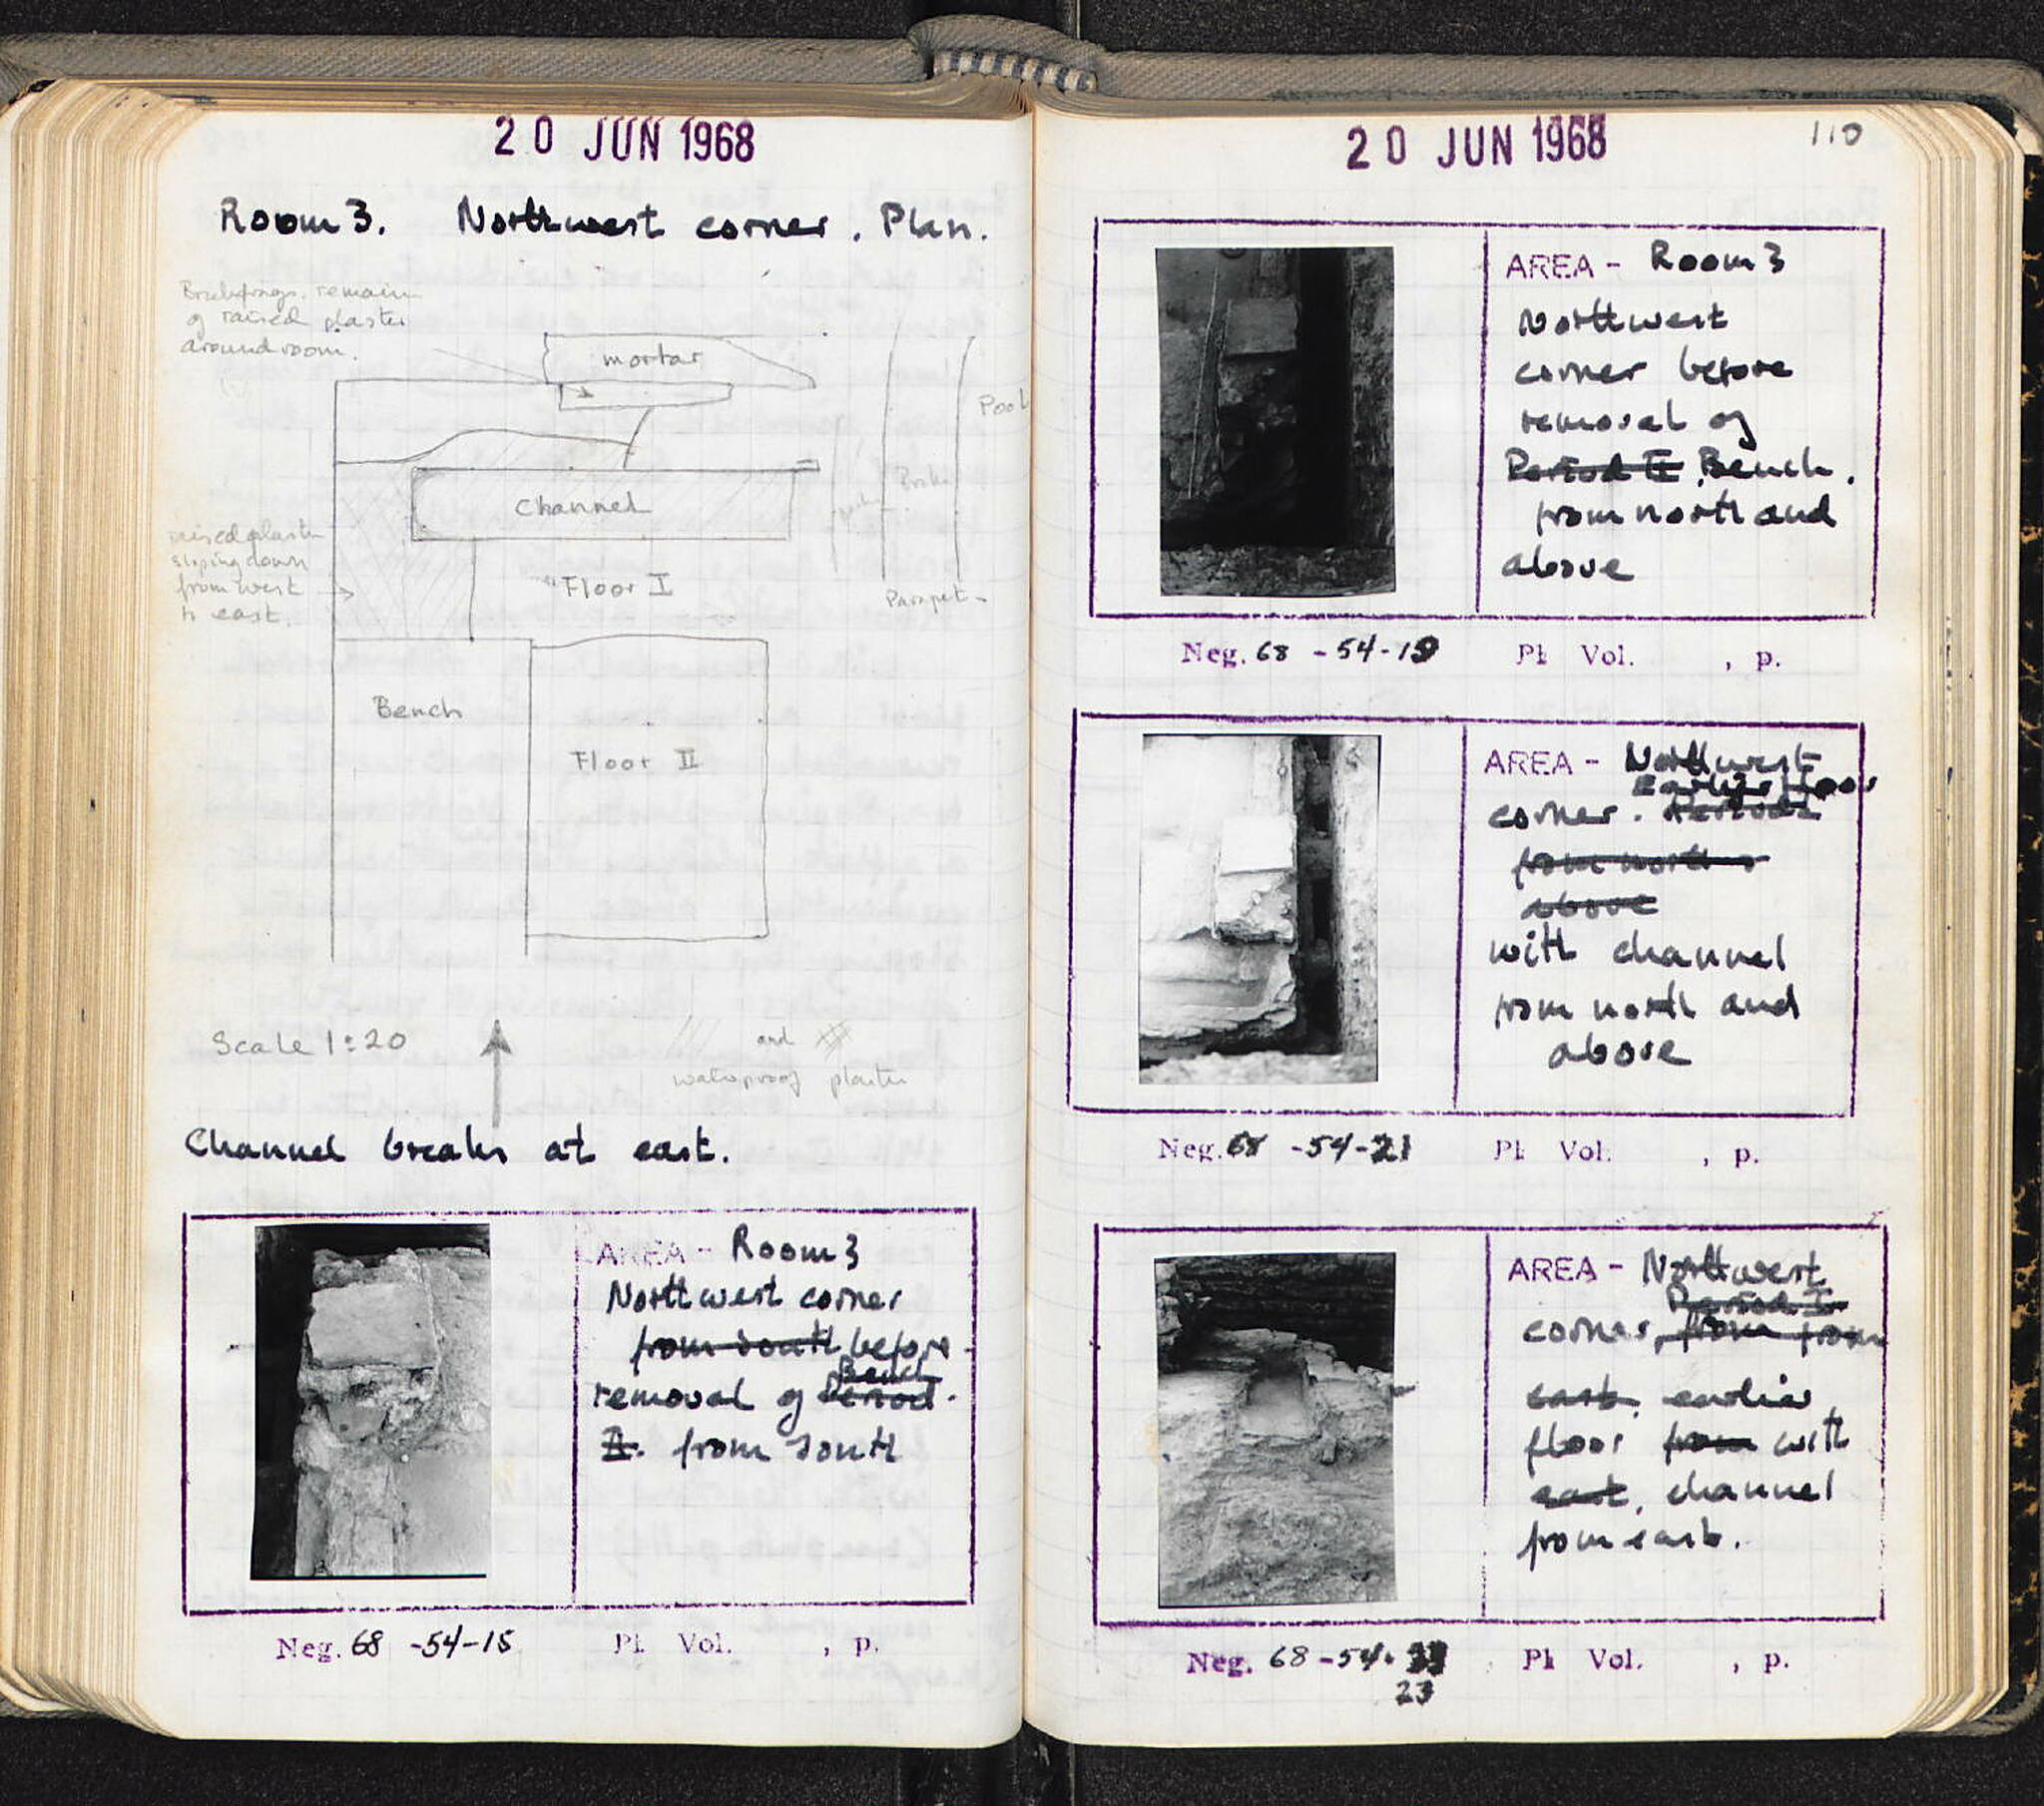 20 JUN 1968
Room 3. Northwest corner. Plan.
remain
of raised plaster
around room.
mortar
Pool
Channel
raised plaster
sloping down
from west
to east.
Floor I
Parapet
Bench
Floor II
Scale 1:20
and
waterproof plaster
Channel breaks at east.
AREA - Room 3
Northwest corner
from south before
Bench
removal of Period
II. from south
Neg. 68 -54-15 Pl. Vol. , p.
20 JUN 1968
110
AREA - Room 3
Northwest
corner before
removal of
Period II Bench.
from north and
above
Neg. 68 -54-19 Pl Vol. , p.
AREA - Northwest
Earlier floor
corner. Period I
from north
above
with channel
from north and
above
Neg. 68 -54-21 Pl. Vol. , p.
AREA - Northwest
Period I
corner, from from
east, earlier
floor from with
east, channel
from east.
Neg. 68-54-
23
Pl Vol. , p.